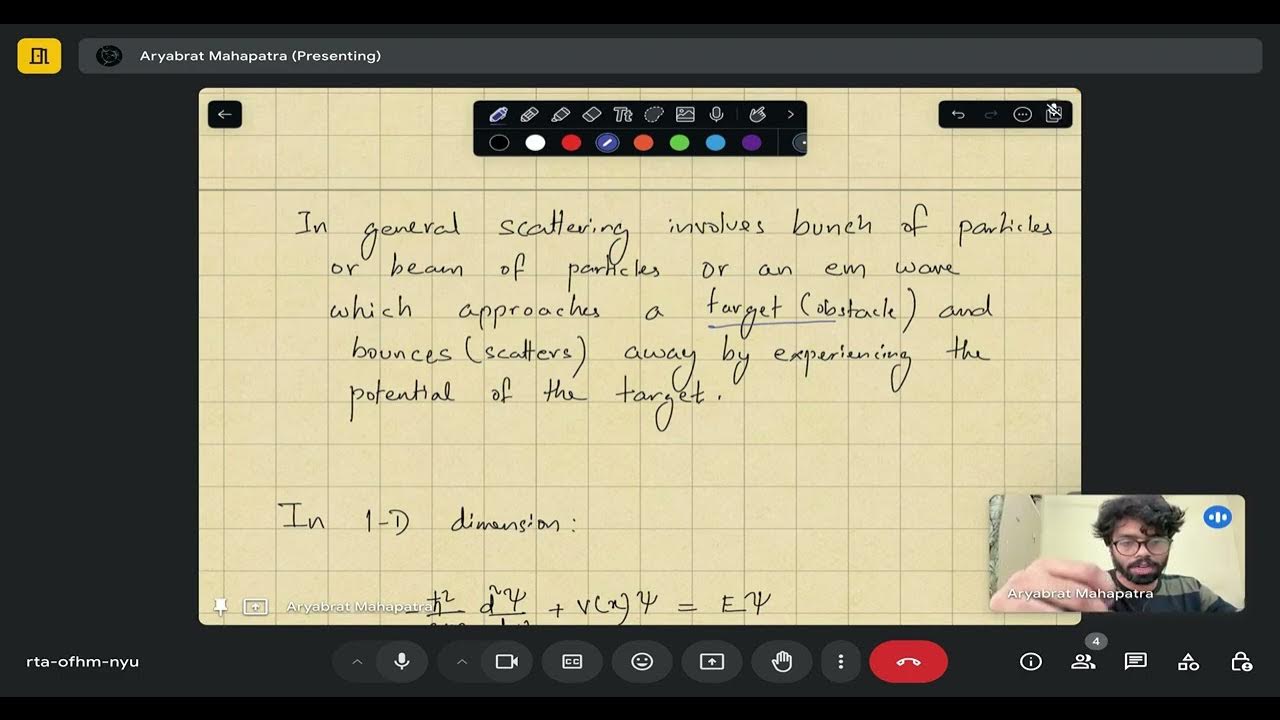 Aryabrat Mahapatra (Presenting)
Tt
In general scattering involves bunch of particles
or beam of particles or an em wave
which approaches a target (obstacle) and
bounces (scatters) away by experiencing the
potential of the target.
In 1-D dimension:
ħ² d²Ψ + V(x)Ψ = EΨ
Aryabrat Mahapatra
Aryabrat Mahapatra
rta-ofhm-nyu
CC
4